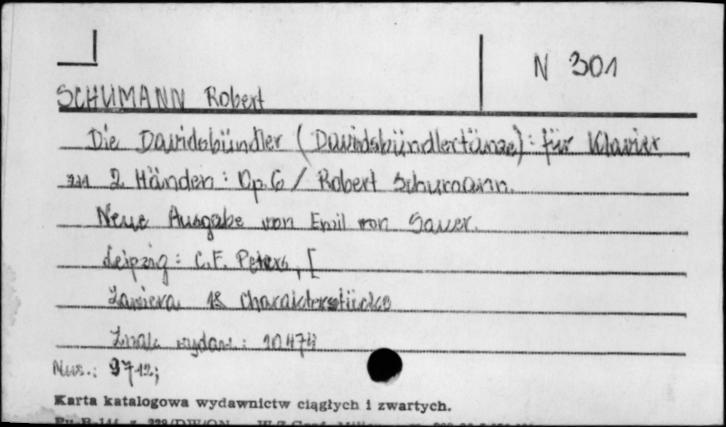 N 301
SCHUMANN Robert
Die Davidsbündler (Davidsbündlertänze) : für Klavier
zu 2 Händen : Op. 6 / Robert Schumann.
Neue Ausgabe von Emil von Sauer.
Leipzig : C.F. Peters, [
Zawiera 18 Charakterstücke
Znak wydaw.: 10474
Mus.: 9712;
Karta katalogowa wydawnictw ciągłych i zwartych.